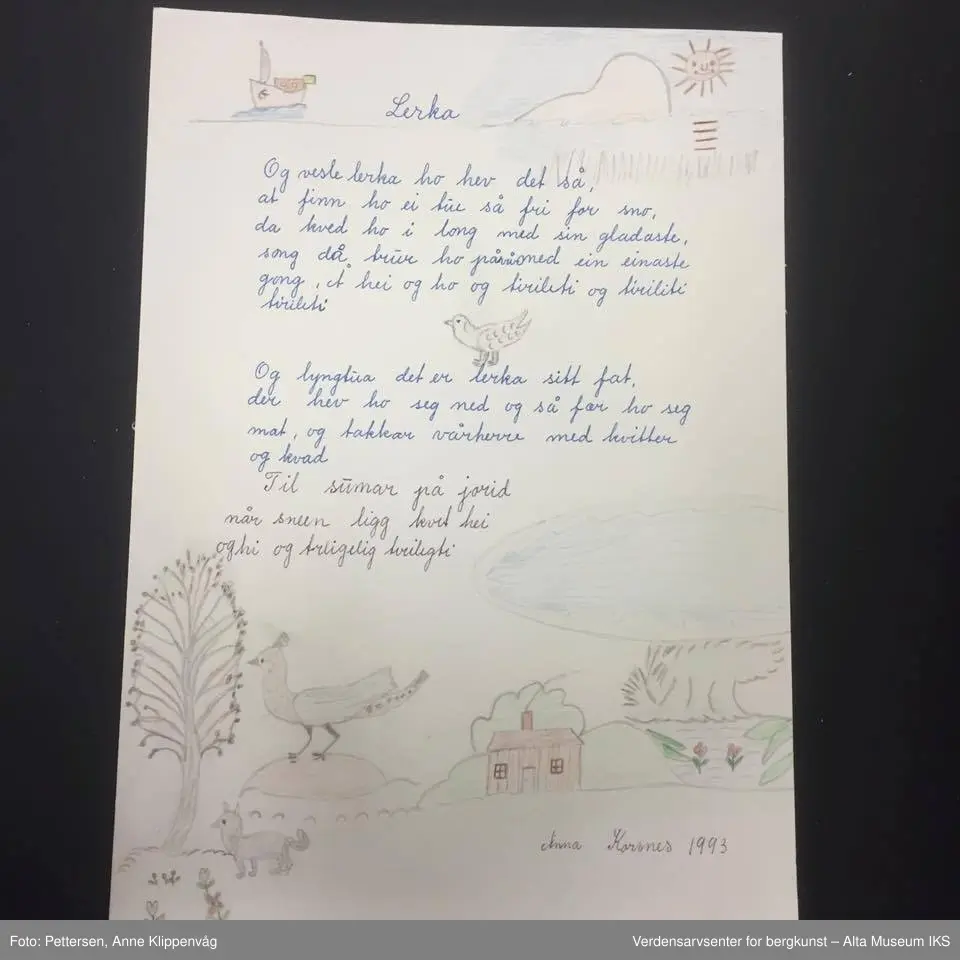 Lerka
Og vesle lerka ho hev det så,
at finn ho ei tue så fri for sno,
da kved ho i long med sin gladaste,
song då, trur ho med ein einaste
gong, å hei og ho og tirileti og tiriliti
tirileti
Og lyngtua det er lerka sitt fat,
der hev ho seg ned og så fær ho seg
mat, og takkar vårherre med kvitter
og kvad
Til sumar på jorid
når sneen ligg kvit hei
og hi og
Anna Korsnes 1993
Foto: Pettersen, Anne Klippenvåg
Verdensarvsenter for bergkunst – Alta Museum IKS